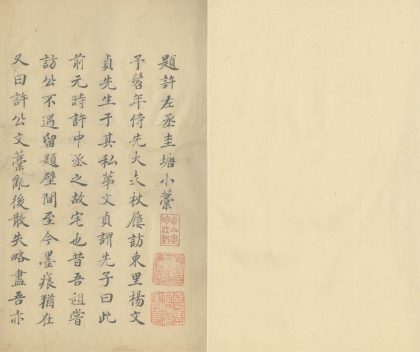 題許左丞圭塘小藁
予髫年侍先大父杖屨訪東里楊文
貞先生于其私第文貞謂先子曰此
前元時許中丞之故宅也昔吾祖嘗
訪公不遇留題壁間至今墨痕猶在
又曰許公文藁亂後散失略盡吾亦